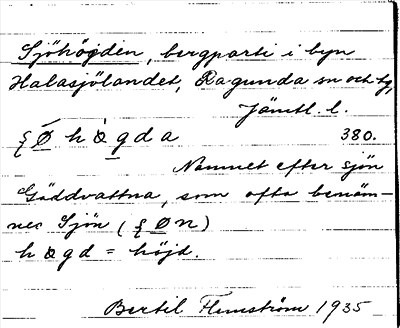 Sjöhögden, bergparti i byn
Halasjölandet, Ragunda sn och tg,
Jämtl. l.
ʃØ hògda 380.
Namnet efter sjön
Gäddvattna, som ofta benäm-
nes Sjön (ʃØn)
høgd = höjd.
Bertil Flemström 1935